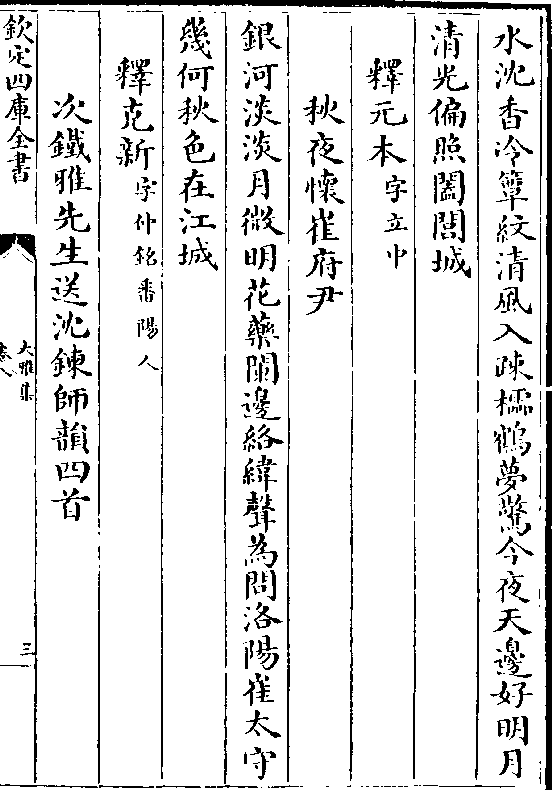 水沈香冷簟紋清風入疎櫺鶴夢驚今夜天邊好明月
清光偏照闔閭城
釋元本字立中
秋夜懷崔府尹
銀河淡淡月微明花藥闌邊絡緯聲為問洛陽崔太守
幾何秋色在江城
釋克新字仲銘番陽人
次鐵雅先生送沈鍊師韻四首
欽定四庫全書
大雅集
卷八
三